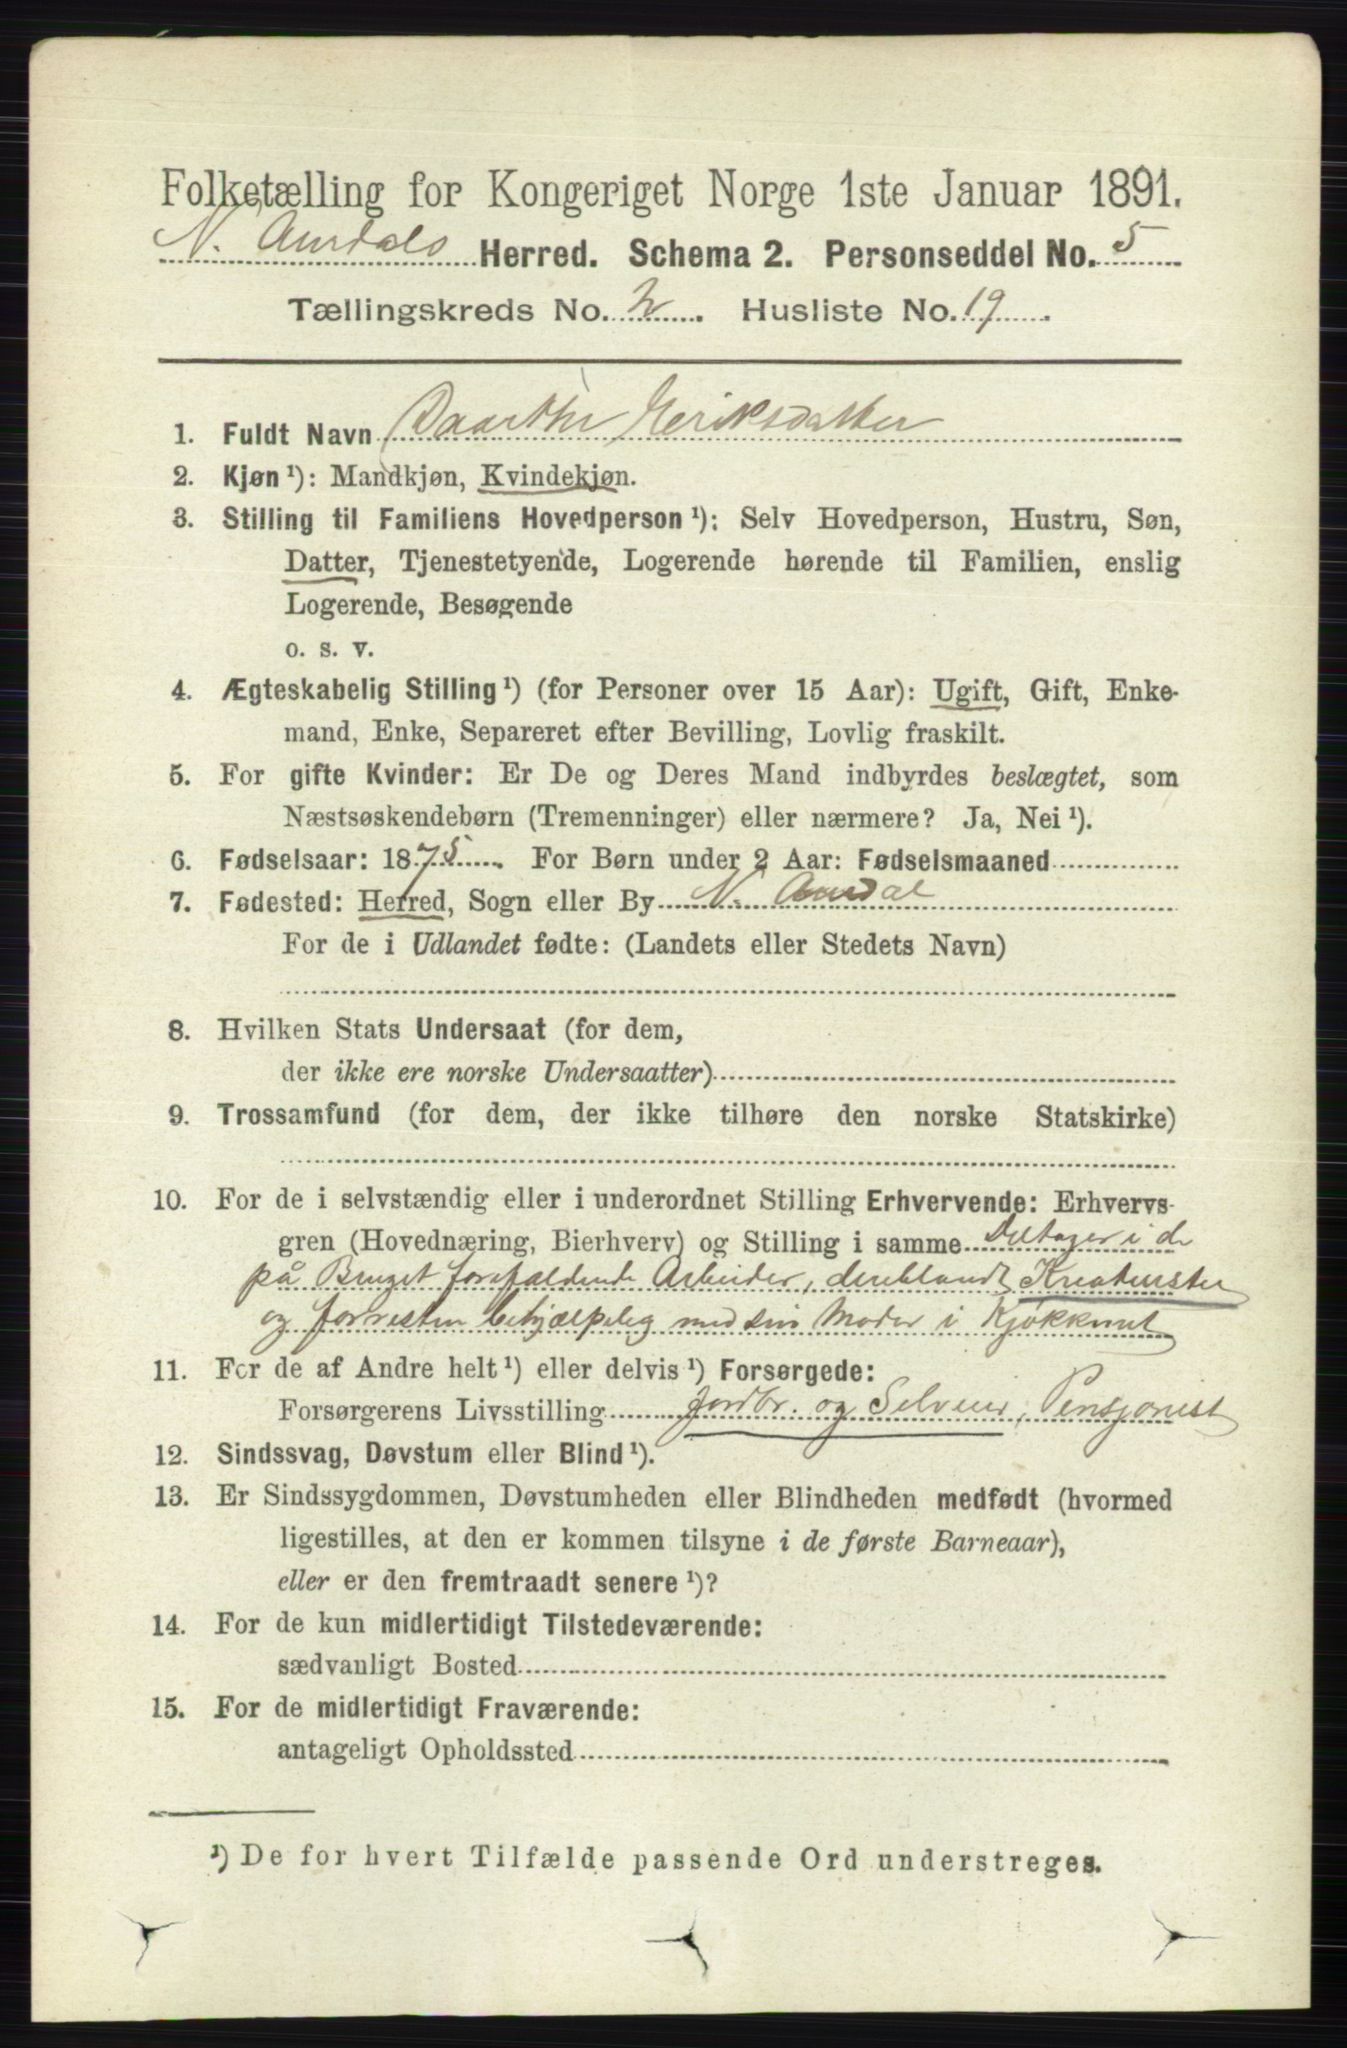 Folketælling for Kongeriget Norge 1ste Januar 1891.
N. Aurdals Herred. Schema 2. Personseddel No. 5
Tællingskreds No. 2. Husliste No. 19.
1. Fuldt Navn Eriksdatter
2. Kjøn ¹): Mandkjøn, Kvindekjøn.
3. Stilling til Familiens Hovedperson ¹): Selv Hovedperson, Hustru, Søn,
Datter, Tjenestetyende, Logerende hørende til Familien, enslig
Logerende, Besøgende
o. s. v.
4. Ægteskabelig Stilling ¹) (for Personer over 15 Aar): Ugift, Gift, Enke-
mand, Enke, Separeret efter Bevilling, Lovlig fraskilt.
5. For gifte Kvinder: Er De og Deres Mand indbyrdes beslægtet, som
Næstsøskendebørn (Tremenninger) eller nærmere? Ja, Nei ¹).
6. Fødselsaar: 1875. For Børn under 2 Aar: Fødselsmaaned
7. Fødested: Herred, Sogn eller By N. Aurdal
For de i Udlandet fødte: (Landets eller Stedets Navn)
8. Hvilken Stats Undersaat (for dem,
der ikke ere norske Undersaatter)
9. Trossamfund (for dem, der ikke tilhøre den norske Statskirke)
10. For de i selvstændig eller i underordnet Stilling Erhvervende: Erhvervs-
gren (Hovednæring, Bierhverv) og Stilling i samme Deltager i de
på Bruget forefaldende Arbeider, deriblandt Kreaturstel
og forresten behjælpelig med sin Moder i Kjøkkenet
11. For de af Andre helt ¹) eller delvis ¹) Forsørgede:
Forsørgerens Livsstilling Jordbr. og Selveier, Pensjonist
12. Sindssvag, Døvstum eller Blind ¹).
13. Er Sindssygdommen, Døvstumheden eller Blindheden medfødt (hvormed
ligestilles, at den er kommen tilsyne i de første Barneaar),
eller er den fremtraadt senere ¹)?
14. For de kun midlertidigt Tilstedeværende:
sædvanligt Bosted
15. For de midlertidigt Fraværende:
antageligt Opholdssted
¹) De for hvert Tilfælde passende Ord understreges.